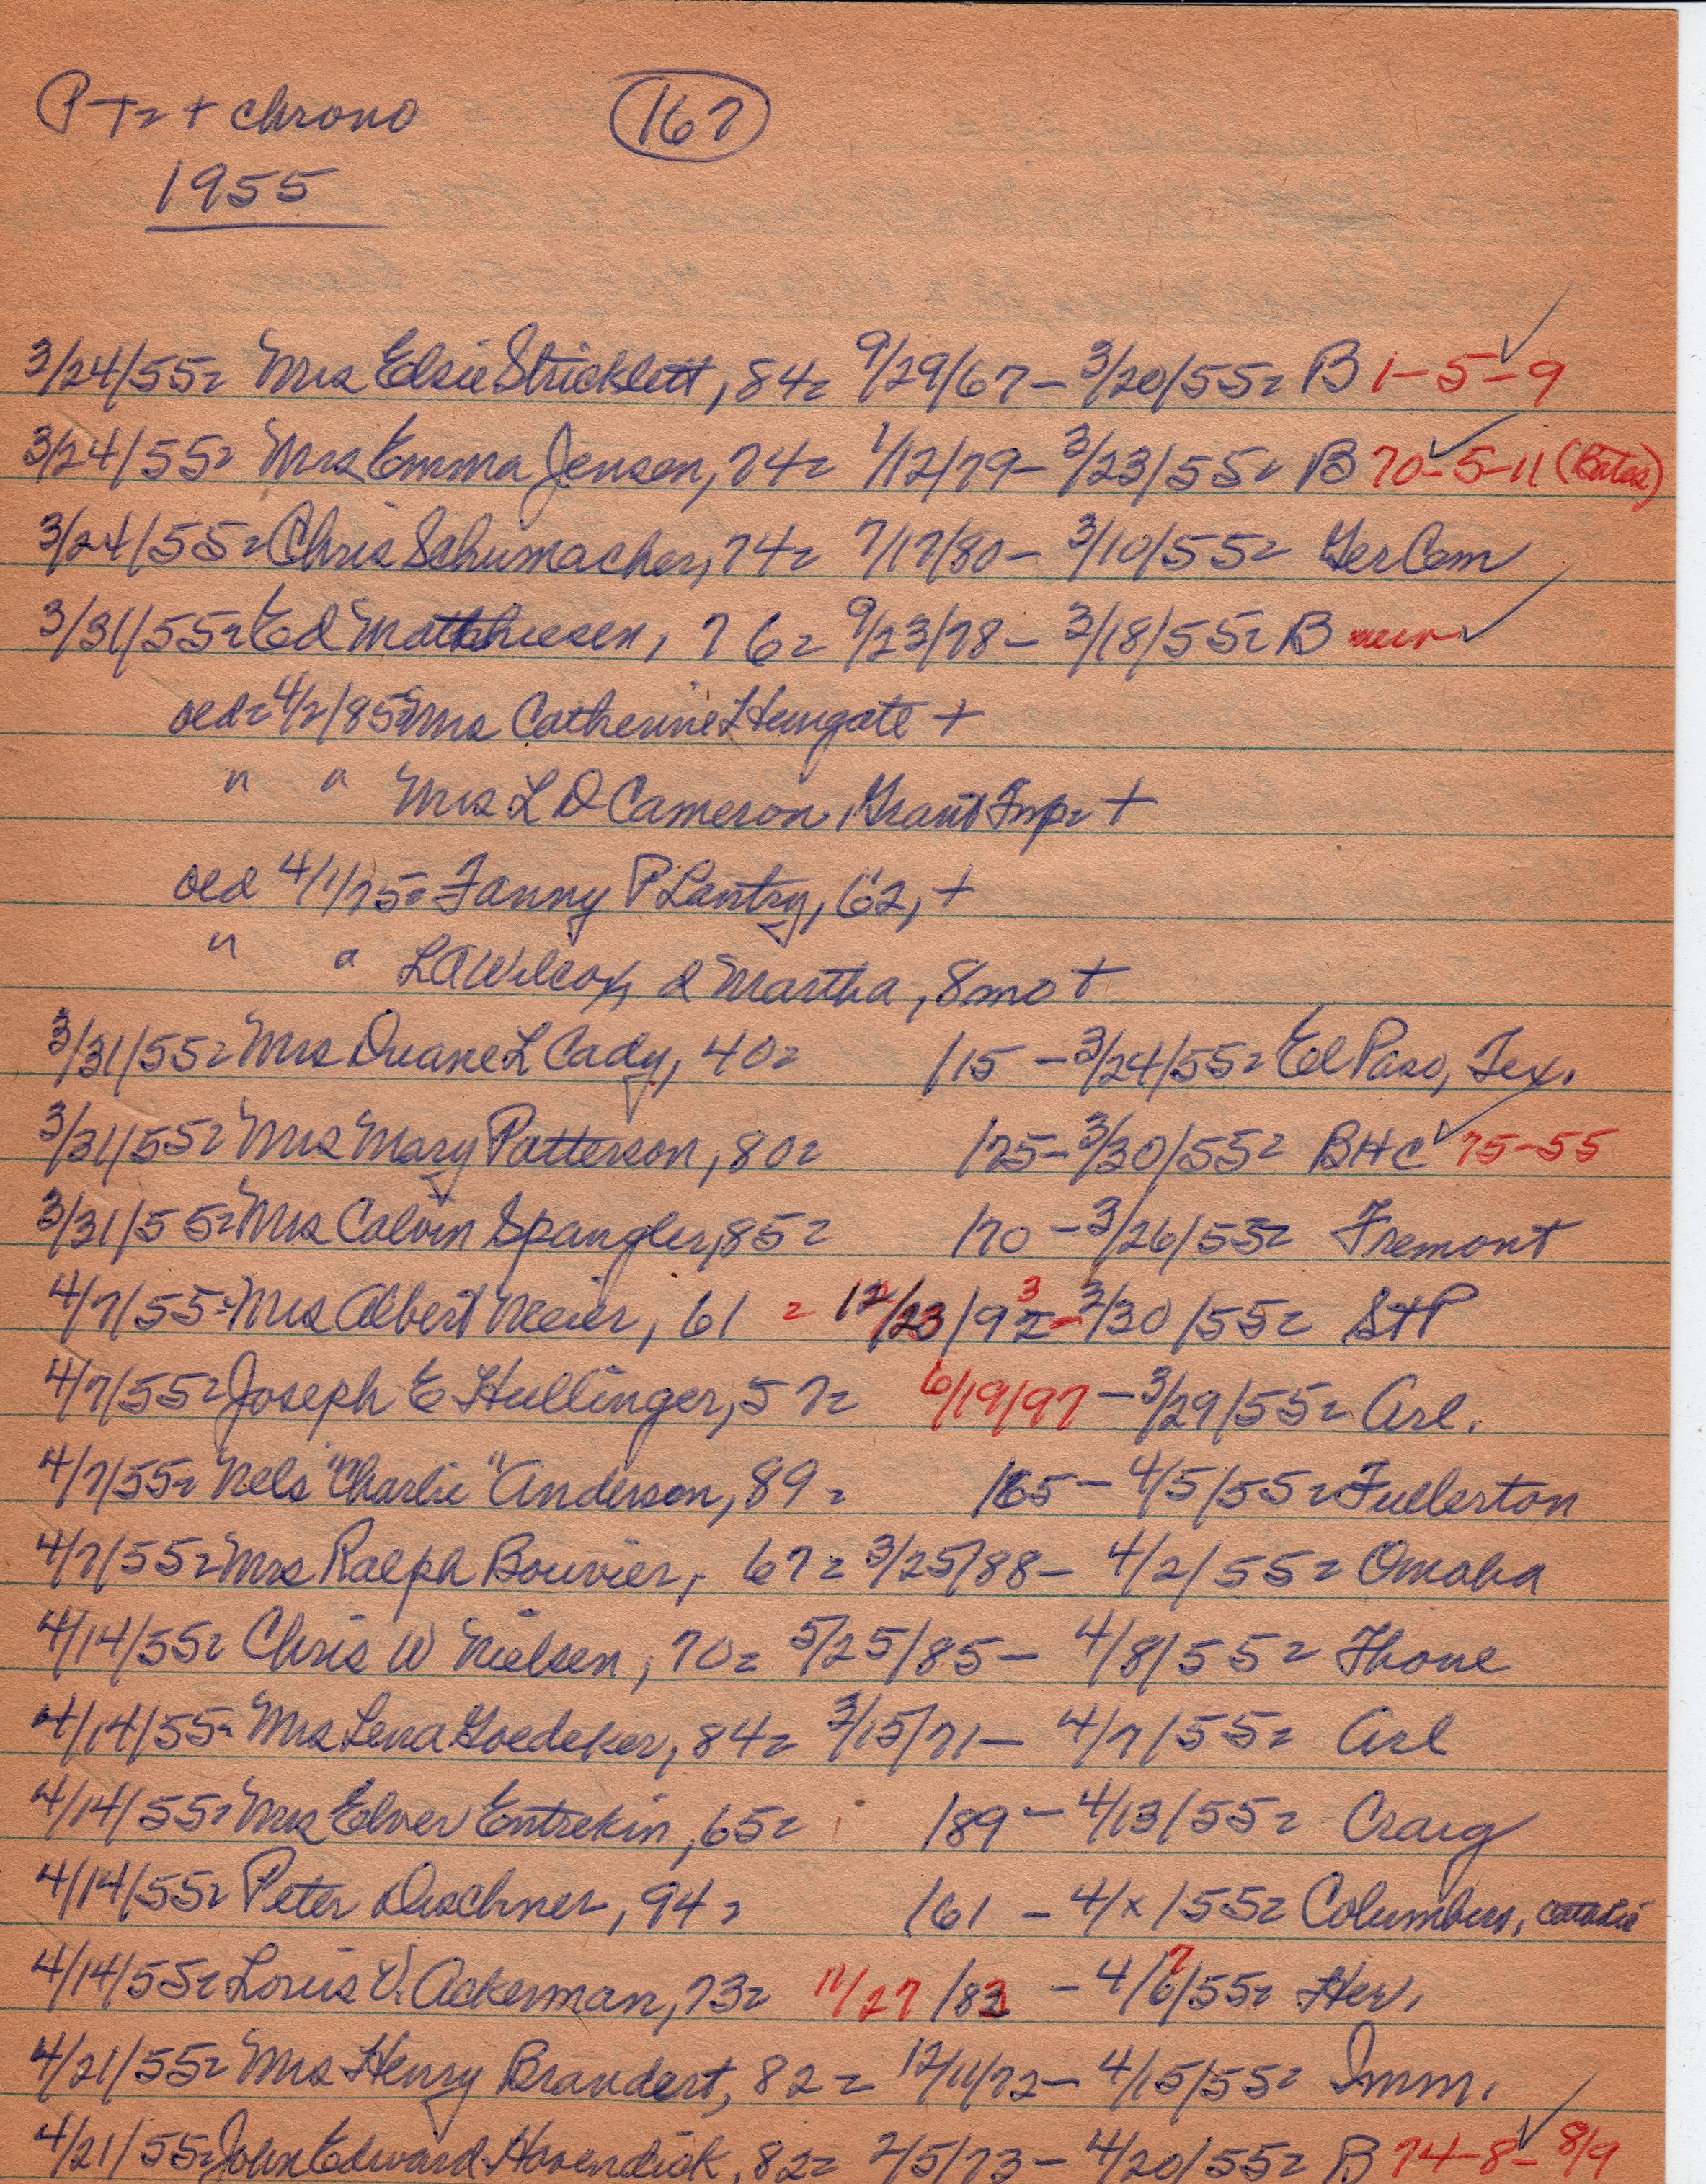 PT= + chrono (167)
1955
3/24/55= Mrs Elsie Stricklett, 84= 9/29/67 - 3/20/55= B 1-5-9
3/24/55= Mrs Emma Jensen, 74= 1/12/79 - 3/23/55= B 70-5-11 (Bates)
3/24/55= Chris Schumacher, 74= 7/17/80 - 3/10/55= Ger Cem
3/31/55= Ed Matthiesen, 76= 9/23/78 - 3/18/55= B
4/2/85= Mrs Catherine Hungate +
" " Mrs L D Cameron, Grant Imp= +
4/1/75= Fanny P Lantry, 62, +
" " L A Wilcox, d Martha, 8 mo +
3/31/55= Mrs Duane L Cady, 40= /15 - 3/24/55= El Paso, Tex.
3/31/55= Mrs Mary Patterson, 80= /75 - 3/30/55= BHC 75-55
3/31/55= Mrs Calvin Spangler, 85= /70 - 3/26/55= Fremont
4/7/55= Mrs Albert Meier, 61 = 12/23/93 - 3/30/55= St P
4/7/55= Joseph E Hullinger, 57= 6/19/97 - 3/29/55= Arl.
4/7/55= Nels "Charlie" Anderson, 89= /65 - 4/5/55= Fullerton
4/7/55= Mrs Ralph Bouvier, 67= 3/25/88 - 4/2/55= Omaha
4/14/55= Chris W Nielsen, 70= 5/25/85 - 4/8/55= Fhome
4/14/55= Mrs Lena Goedeker, 84= 3/15/71 - 4/7/55= Arl
4/14/55= Mrs Elver Entrekin, 65= /89 - 4/13/55= Craig
4/14/55= Peter Duschner, 94= /61 - 4/x/55= Columbus,
4/14/55= Louis V. Ackerman, 73= 11/27/83 - 4/7/55= Her.
4/21/55= Mrs Henry Brandert, 82= 12/11/72 - 4/15/55= Imm.
4/21/55= John Edward Havendick, 82= 2/5/73 - 4/20/55= B 74-8-8/9